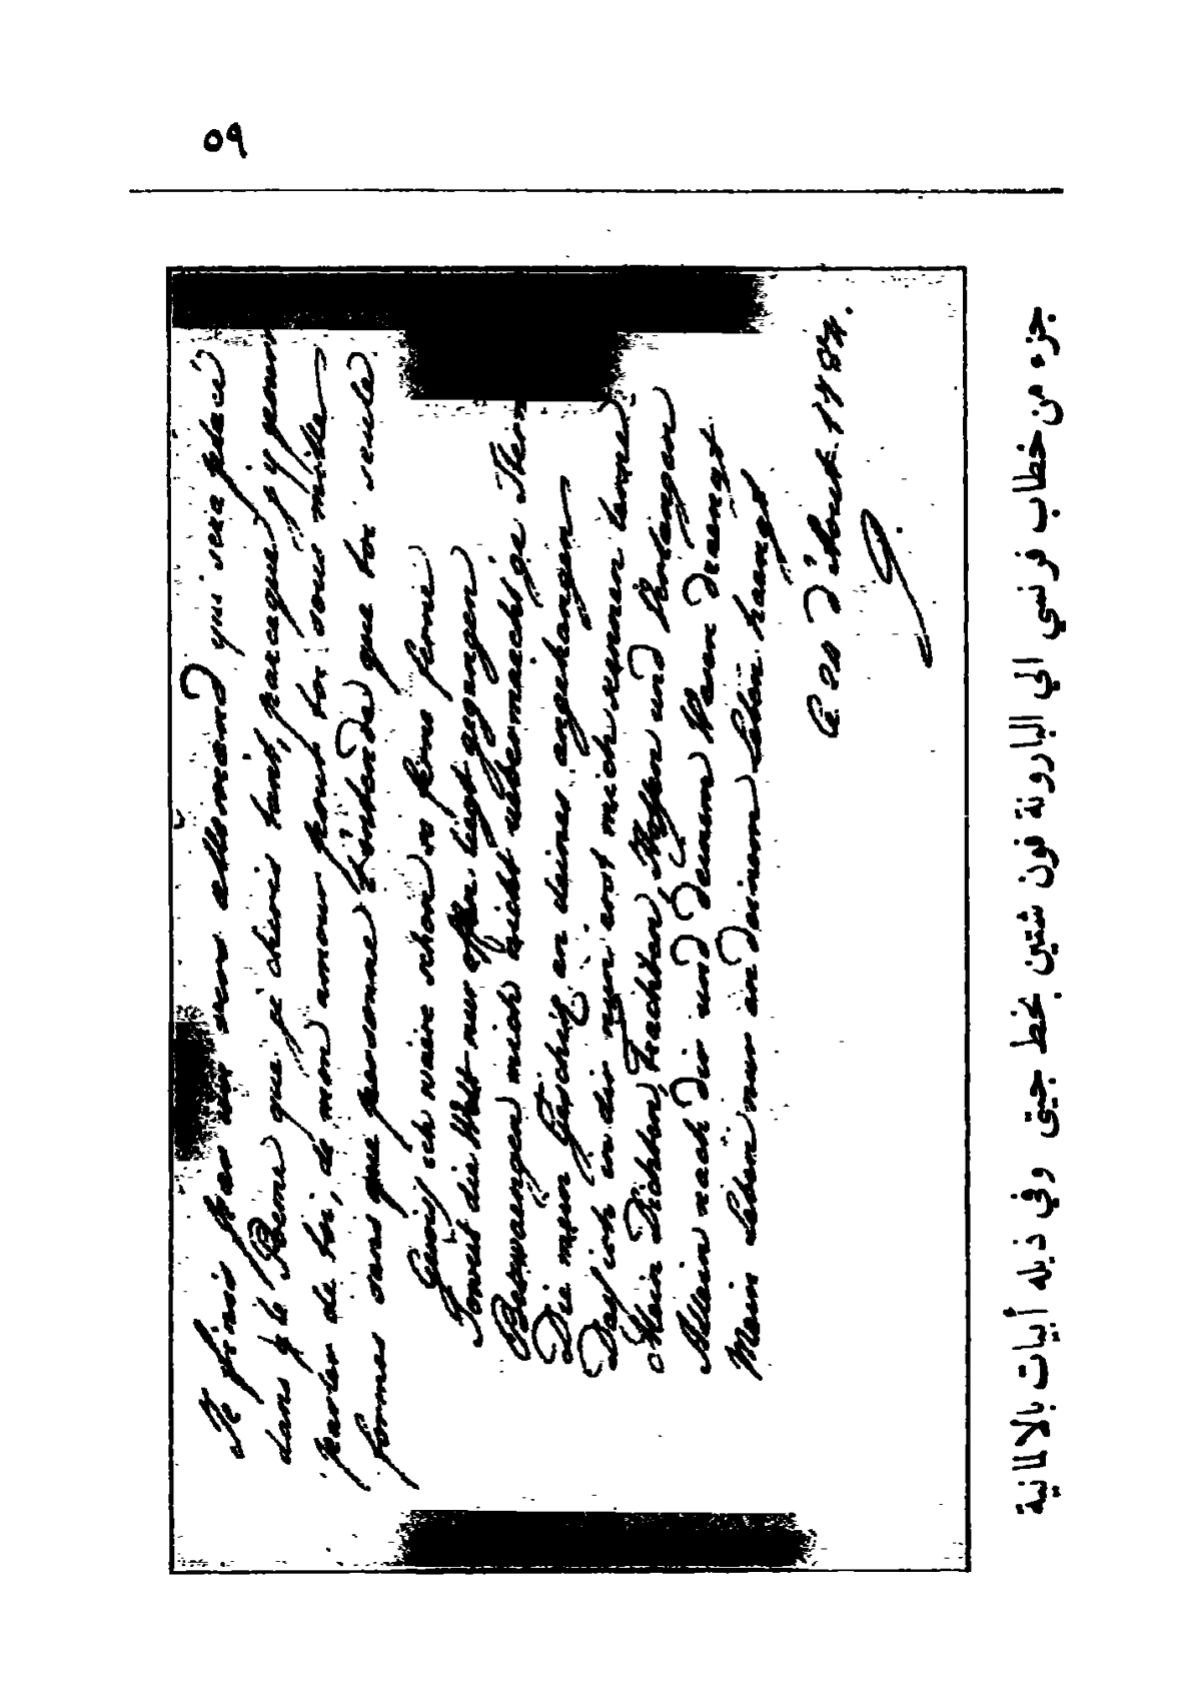 ٥٩
Je finis par un vers allemand qui sera placé
dans le Poeme que je cheris tant, parceque j'y pourrai
parler de toi, de mon amour pour toi sous mille
formes sans que personne l'entende que toi seule
Gewiss ich waere schon so ferne ferne
Soweit die Welt nur offen liegt gegangen
Bezwaengen mich nicht uebermaechtge Stern
Die mein Geschick an deines angehangen
Dass ich in dir nun erst mich kennen lerne
Mein Dichten, Trachten, Hoffen und Verlangen
Allein nach dir und deinem Wesen draengt
Mein Leben nur an deinem Leben haengt
Ce d'Aout 1784.
G.
جزء من خطاب فرنسي الي البارونة فون شتين بخط جيتى وفي ذيله أبيات بالالمانية